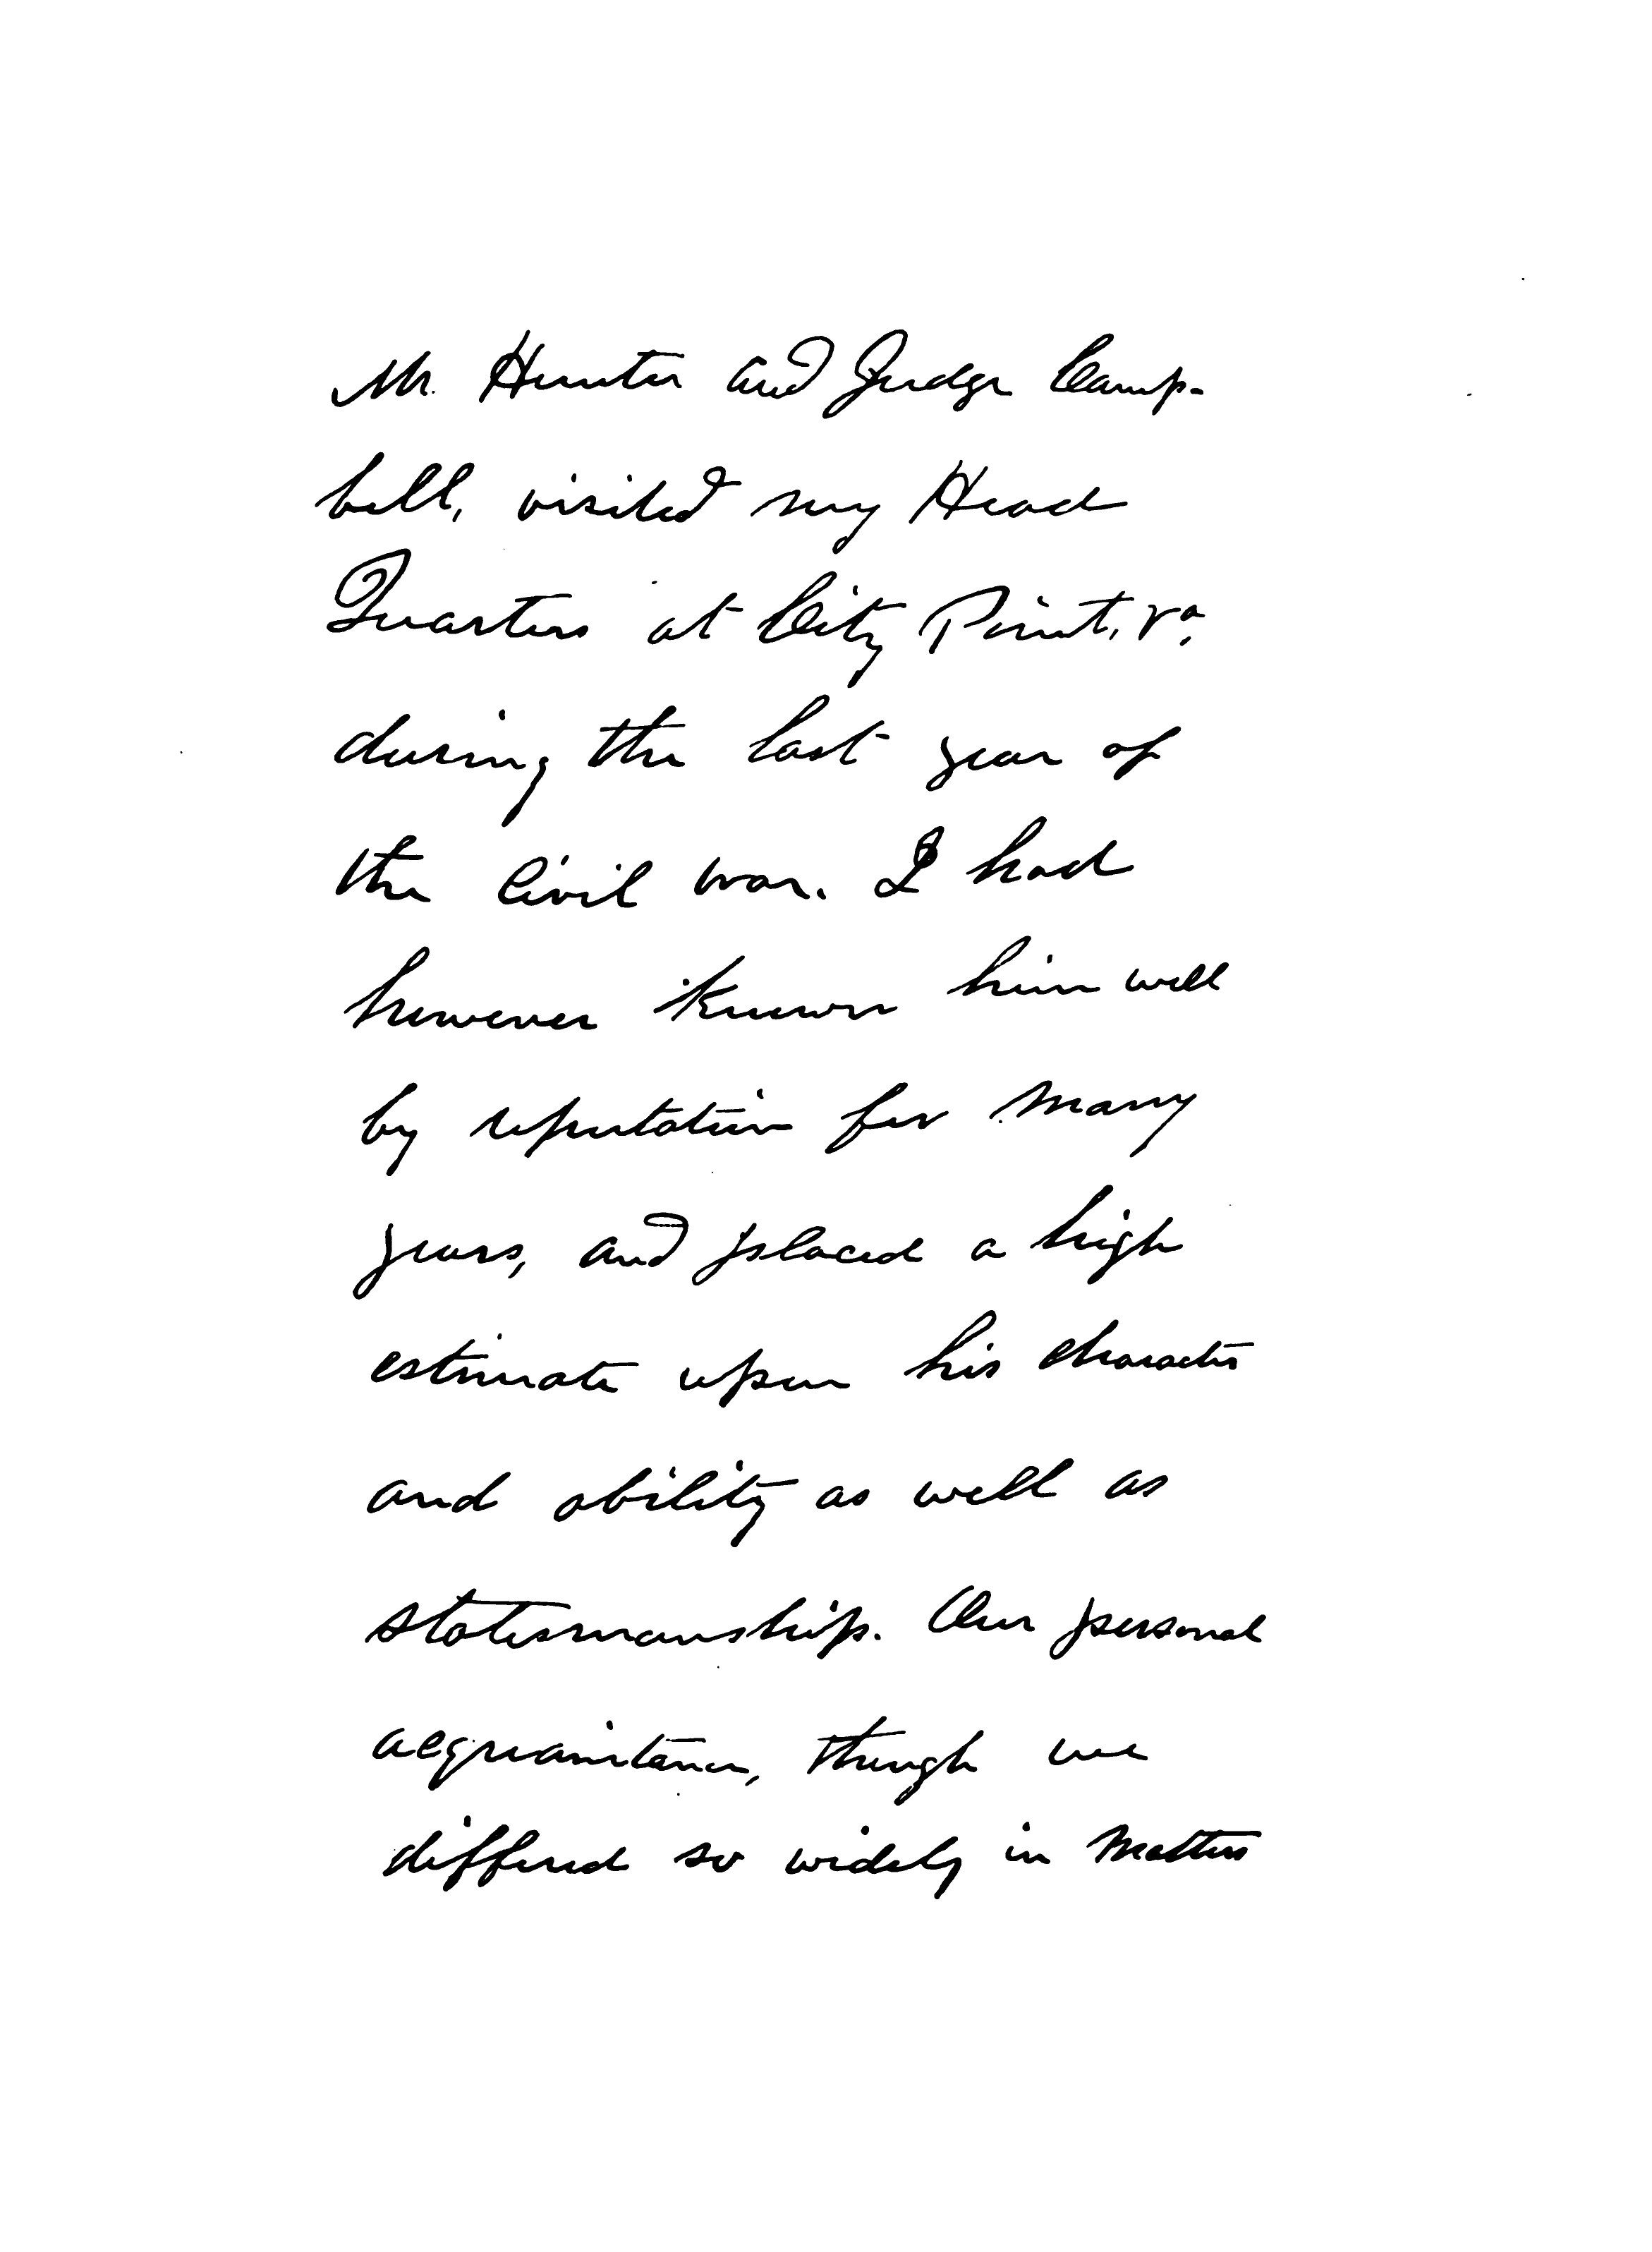 Mr. Hunter and Judge Camp-
bell, visited my Head
Quarters at City Point, Va.
during the last year of
the Civil war. I had
however known him well
by reputation for many
years, and placed a high
estimate upon his character
and ability as well as
statesmanship. Our personal
acquaintance, though we
differed so widely in matters